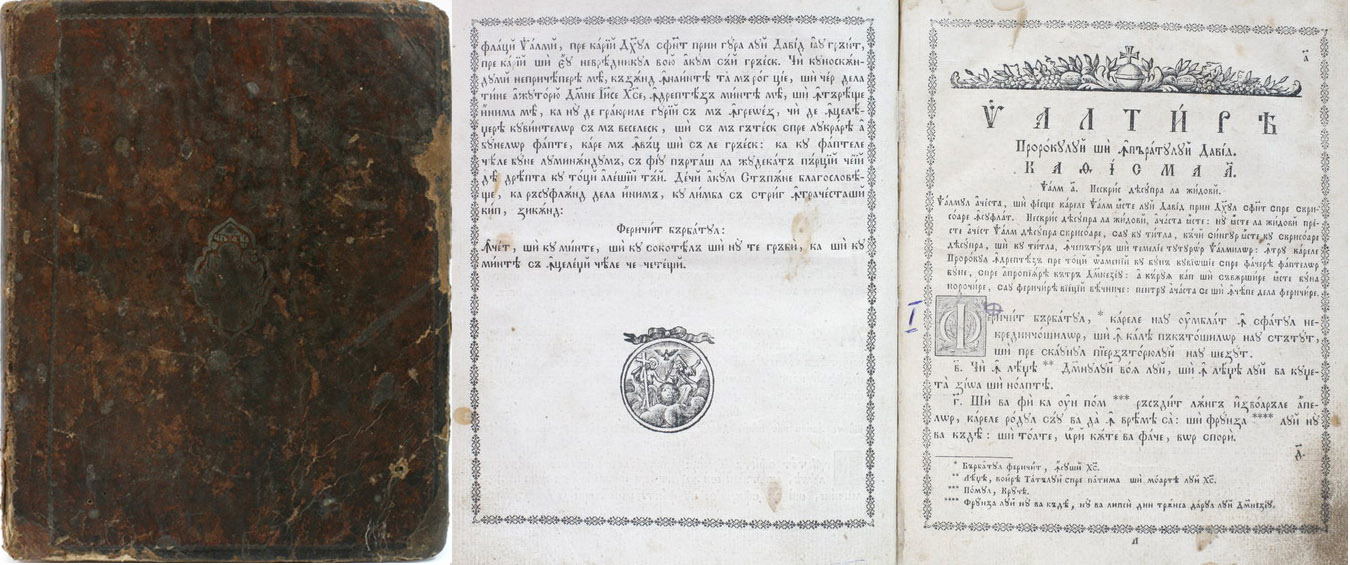 флацй Ѱалмй, пре карій Дх҃ул сфн҃т прин гура луй Давід і҆ау грѣит,
пре карій шй є҆у невре́дникул вою а҆кум съй грѣеск. Чй куноскѫн-
думй непричѣпере мѣ, къзѫнд ꙟ҆наинте та мъ ро́г ціе, шй че́р дела
ти́не а҆жуторю Дм҃не Іи҃се Хс҃е, ꙟ҆дрептѣзъ минтѣ мѣ, шй ꙟ҆търѣще
и҆нима мѣ, ка ну де граиріле гурій съ мъ ꙟ҆греѡез, чй де ꙟ҆целѣ-
џере кувинтелѡр съ мъ веселеск, шй съ мъ гътеск спре лукраре а҆
бунелѡр фапте, каре мъ ꙟ҆въц шй съ ле грѣеск: ка ку фаптеле
чѣле буне луминѫндумъ, съ фіу пърташ ла жудекатъ пърцій чей
дѣ дрѣпта ку тоци а҆лешій тъй. Дечй а҆кум Стъпѫне благословѣ-
ще, ка ръсуфлѫнд дела и҆нимъ, ку лимба съ стриг ꙟ҆трачесташй
кип, зикѫнд:
Феричит бърбатул:
Ꙟ҆чет, шй ку минте, шй ку сокотѣлъ шй ну те гръби, ка шй ку
минтѣ съ ꙟ҆целещй чѣле че четещй.
а҃
Ѱ А Л Т И́ Р Ѣ
Пророкулуй шй ꙟ҆пъратулуй Давід.
К А Ѳ І С М А А҃.
Ѱалм а҃. Нескріс дѣсупра ла жидовй.
Ѱалмул а҆честа, шй фіеще кареле Ѱалм є҆сте луй Давід прин Дх҃ул сфн҃т спре скри-
соаре ꙟ҆суфлат. Нескріс дѣсупра ла жидовй, а҆часта є҆сте: ну є҆сте ла жидовй пре-
сте а҆чест Ѱалм дѣсупра скрисоаре, сау ку титла, къчй сингур є҆сте ку скрисоаре
дѣсупра, шй ку титла, ꙟ҆чепътуръ шй темеліе тутурѡр Ѱалмилѡр: ꙟ҆тру кареле
Пророкул ꙟ҆дрептѣзъ пре тоцй ѡ҆аменій ку бунъ кувіѡшіе спре фачерѣ фаптелѡр
буне, спре а҆пропіѧрѣ кътръ Дм҃незеу: а҆ кърꙋѧ кап шй съвършире є҆сте буна
норочире, сау феричирѣ віецій вѣчниче: пентру а҆часта се шй ꙟ҆чѣпе дела феричире.
І
Феричит бърбатул, * кареле нау ѹмблат ꙟ҆ сфатул не-
крединчошилѡр, шй ꙟ҆ калѣ пъкътошилѡр нау стътут,
шй пре скаунул піерзъторюлуй нау шезут.
в҃. Чй ꙟ҆ лѣџѣ ** Дм҃нулуй воѧ луй, шй ꙟ҆ лѣџѣ луй ва куџе-
та̀ зіѡа шй ноаптѣ.
г҃. Шй ва фй ка ѹн пом *** ръсъдит лѫнгъ и҆звоаръле а҆пе-
лѡр, кареле родул съу ва да̀ ꙟ҆ врѣмѣ са̀: шй фрунза **** луй ну
ва къдѣ: шй тоате, ѡ҆ри кѫте ва фаче, вѡр спорй.
д҃.
* Бърбатул феричит, ꙟ҆сушй Хс҃.
** Лѣџѣ, войрѣ Татълуй спре патима шй моартѣ луй Хс҃.
*** Помул, Кручѣ.
**** Фрунза луй ну ва къдѣ, ну ва липсй дин трѫнса дарул луй Дм҃незеу.
а